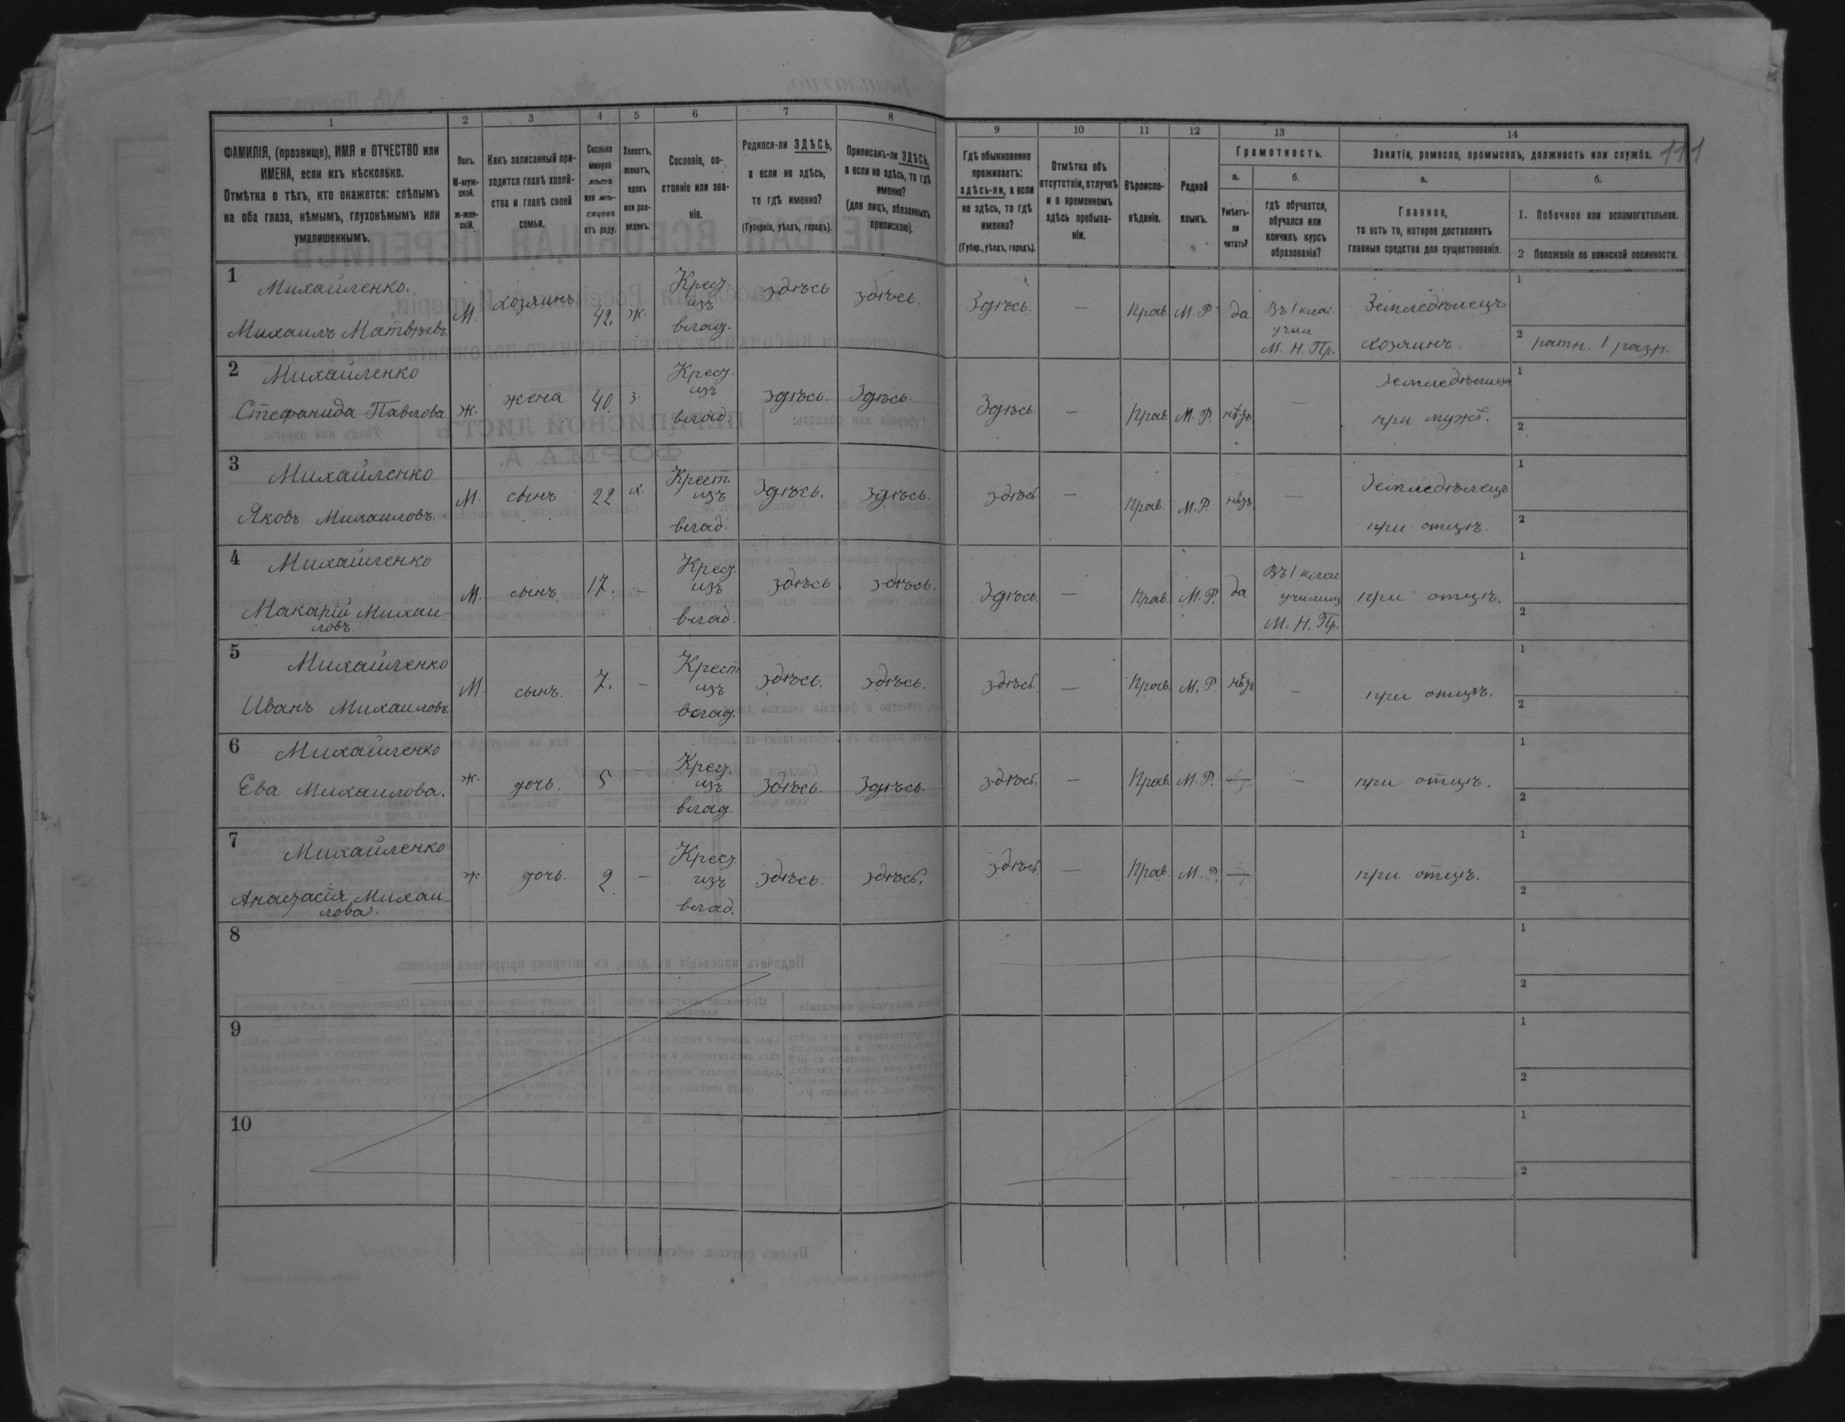 1 2 3 4 5 6 7 8 9 10 11 12 13 14
111
ФАМИЛІЯ, (прозвище), ИМЯ и ОТЧЕСТВО или
ИМЕНА, если ихъ нѣсколько.
Отмѣтка о тѣхъ, кто окажется: слѣпымъ
на оба глаза, нѣмымъ, глухонѣмымъ или
умалишеннымъ.
Полъ.
М-муж-
ской.
ж-жен-
скій.
Какъ записанный при-
ходится главѣ хозяй-
ства и главѣ своей
семьи.
Сколько
минуло
лѣтъ
или мѣ-
сяцевъ
отъ роду.
Холостъ,
женатъ,
вдовъ
или раз-
веденъ.
Сословіе, со-
стояніе или зва-
ніе.
Родился-ли ЗДѢСЬ,
а если не здѣсь,
то гдѣ именно?
(Губернія, уѣздъ, городъ).
Приписанъ-ли ЗДѢСЬ,
а если не здѣсь, то гдѣ
именно?
(для лицъ, обязанныхъ
припискою).
Гдѣ обыкновенно
проживаетъ:
здѣсь-ли, а если
не здѣсь, то гдѣ
именно?
(Губер., уѣздъ, городъ).
Отмѣтка объ
отсутствіи, отлучкѣ
и о временномъ
здѣсь пребыва-
ніи.
Вѣроиспо-
вѣданіе.
Родной
языкъ.
Грамотность.
а.
Умѣетъ-
ли
читать?
б.
гдѣ обучается,
обучался или
кончилъ курсъ
образованія?
Занятія, ремесло, промыселъ, должность или служба.
а.
Главное,
то есть то, которое доставляетъ
главныя средства для существованія.
б.
1. Побочное или вспомогательное.
2 Положеніе по воинской повинности.
1
Михайленко.
Михаилъ Матвѣевъ
М.
хозяинъ
42.
ж.
Крест
изъ
влад.
здѣсь
здѣсь.
Здѣсь
—
Прав
М. Р.
да
Въ 1 клас.
учил
М. Н. Пр.
Земледѣлецъ
хозяинъ.
1
2 ратн. 1 разр.
2
Михайленко
Стефанида Павлова
ж.
жена
40
з.
Крест.
изъ
влад.
здѣсь.
Здѣсь.
Здѣсь
—
Прав
М. Р.
нѣтъ
—
при мужѣ.
1
2
3
Михайленко
Яковъ Михаиловъ.
М.
сынъ
22
х.
Крест.
изъ
влад.
Здѣсь.
здѣсь.
здѣсь
—
Прав.
М. Р.
нѣтъ
—
Земледѣлецъ
при отцѣ.
1
2
4
Михайленко
Макарій Михаи-
ловъ.
М.
сынъ
17.
—
Крест.
изъ
влад.
здѣсь
здѣсь.
Здѣсь.
—
Прав.
М. Р.
да
Въ 1 клас
училищ
М. Н. Пр.
при отцѣ.
1
2
5
Михайленко
Иванъ Михаиловъ.
М.
сынъ.
7.
—
Крест
изъ
влад.
здѣсь.
здѣсь.
здѣсь.
—
Прав.
М. Р.
нѣтъ
—
при отцѣ.
1
2
6
Михайленко
Ева Михаилова.
ж.
дочь.
5
—
Крест.
изъ
влад
Здѣсь.
Здѣсь.
здѣсь.
—
Прав.
М. Р.
—
при отцѣ.
1
2
7
Михайленко
Анастасія Михаи-
лова.
ж
дочь
2.
—
Крест
изъ
влад.
здѣсь.
здѣсь.
здѣсь
—
Прав
М. Р.
при отцѣ.
1
2
8
1
2
9
1
2
10
1
2